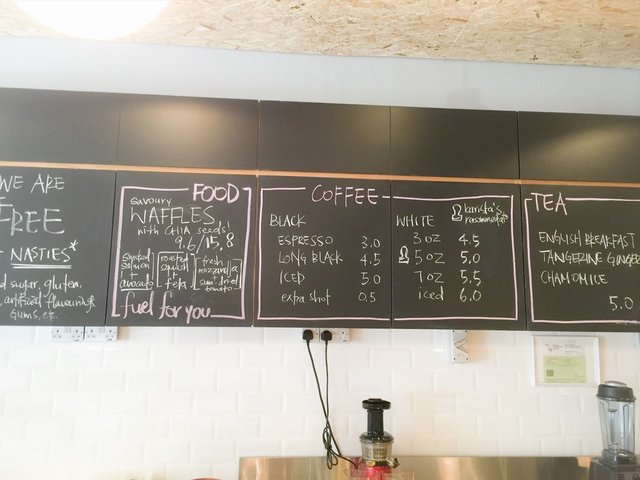 WE ARE
FREE
NASTIES*
sugar, gluten,
artificial flavourings
gums, etc.
FOOD
savoury
WAFFLES
with CHIA seeds!
9.6/15.8
smoked
salmon
+
avocado
roasted
squash
+
feta
fresh
mozzarella
+
sun-dried
tomato
fuel for you
COFFEE
BLACK
ESPRESSO 3.0
LONG BLACK 4.5
ICED 5.0
extra shot 0.5
barista's
WHITE
3 OZ 4.5
5 OZ 5.0
7 OZ 5.5
iced 6.0
TEA
ENGLISH BREAKFAST
TANGERINE GINGER
CHAMOMILE
5.0